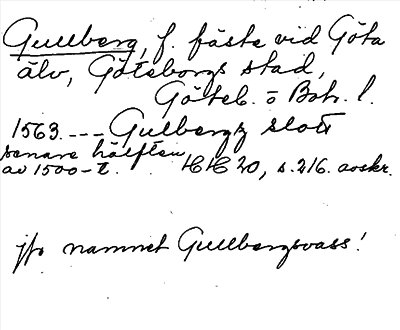 Gullberg, f. fäste vid Göta
älv, Göteborgs stad,
Göteb. o Boh. l.
1563. --- Gulbergz slott
senare hälften
av 1500-t. HH 20, s. 216. avskr.
jfr namnet Gullbergsvass!